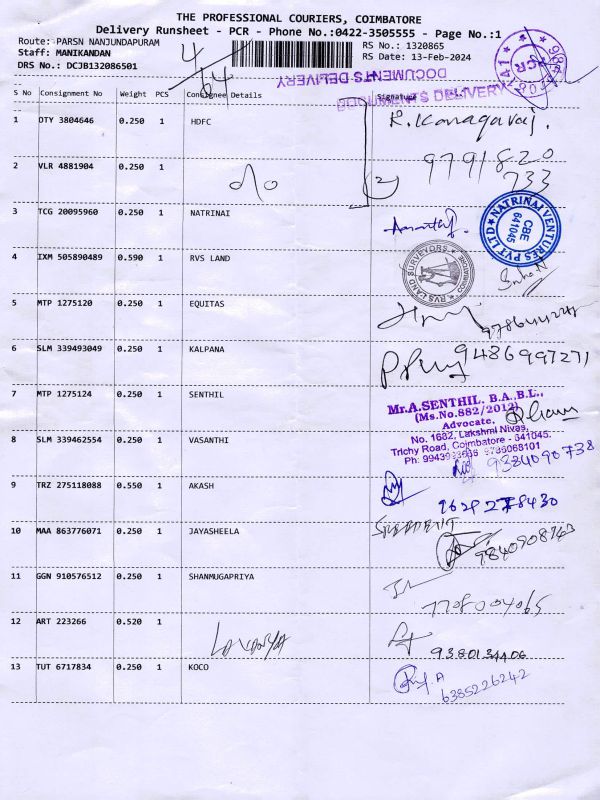 THE PROFESSIONAL COURIERS, COIMBATORE
Delivery Runsheet - PCR - Phone No.:0422-3505555 - Page No.:1
Route: PARSN NANJUNDAPURAM
Staff: MANIKANDAN
DRS No.: DCJB132086501
RS No.: 1320865
RS Date: 13-Feb-2024
4/64
DOCUMENTS DELIVERY
DOCUMENTS DELIVERY
PCR
S No Consignment No Weight PCS Consignee Details Signature
1 DTY 3804646 0.250 1 HDFC
R. Kanagavaj.
9791820
733
2 VLR 4881904 0.250 1
2
3 TCG 20095960 0.250 1 NATRINAI
NATRINAI VENTURES PVT LTD
CBE
641045
4 IXM 505890489 0.590 1 RVS LAND
RVS LAND SURVEYORS
COIMBATORE
5 MTP 1275120 0.250 1 EQUITAS
6 SLM 339493049 0.250 1 KALPANA
9486997271
7 MTP 1275124 0.250 1 SENTHIL
Mr.A.SENTHIL. B.A.,B.L.,
(Ms.No.882/2012)
Advocate,
No. 1682, Lakshmi Nivas,
Trichy Road, Coimbatore - 641045.
8 SLM 339462554 0.250 1 VASANTHI
9384090738
9 TRZ 275118088 0.550 1 AKASH
10 MAA 863776071 0.250 1 JAYASHEELA
9840908763
11 GGN 910576512 0.250 1 SHANMUGAPRIYA
7708004065
12 ART 223266 0.520 1
LAVANYA
9380134406
13 TUT 6717834 0.250 1 KOCO
6385226242